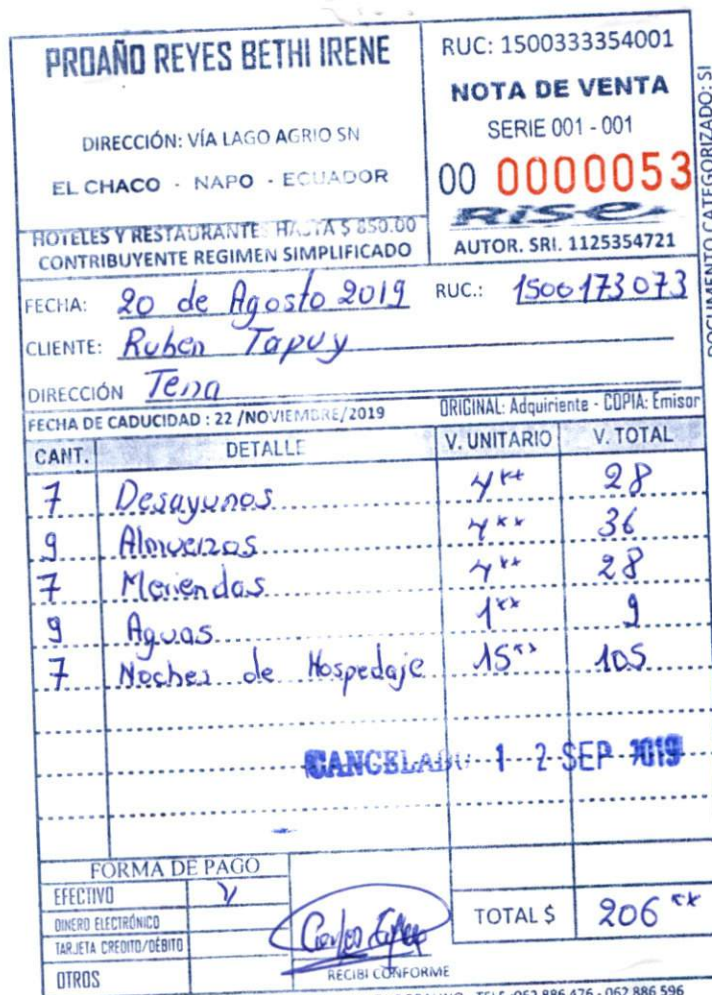 PROAÑO REYES BETHI IRENE
DIRECCIÓN: VÍA LAGO AGRIO SN
EL CHACO - NAPO - ECUADOR
HOTELES Y RESTAURANTE: HASTA $ 850.00
CONTRIBUYENTE REGIMEN SIMPLIFICADO
RUC: 1500333354001
NOTA DE VENTA
SERIE 001 - 001
00 0000053
RISE
AUTOR. SRI. 1125354721
DOCUMENTO CATEGORIZADO: SI
FECHA: 20 de Agosto 2019 RUC.: 1500173073
CLIENTE: Ruben Tapuy
DIRECCIÓN Tena
FECHA DE CADUCIDAD : 22 /NOVIEMBRE/2019 ORIGINAL: Adquiriente - COPIA: Emisor
CANT. DETALLE V. UNITARIO V. TOTAL
7 Desayunos 4 xx 28
9 Almuerzos 4 xx 36
7 Meriendas 4 xx 28
9 Aguas 1 xx 9
7 Noches de Hospedaje 15 xx 105
CANCELADO 1 2 SEP 2019
FORMA DE PAGO
EFECTIVO
DINERO ELECTRÓNICO
TARJETA CREDITO/DÉBITO
OTROS
RECIBI CONFORME
TOTAL $ 206 xx
TELF.:062 886 476 - 062 886 596